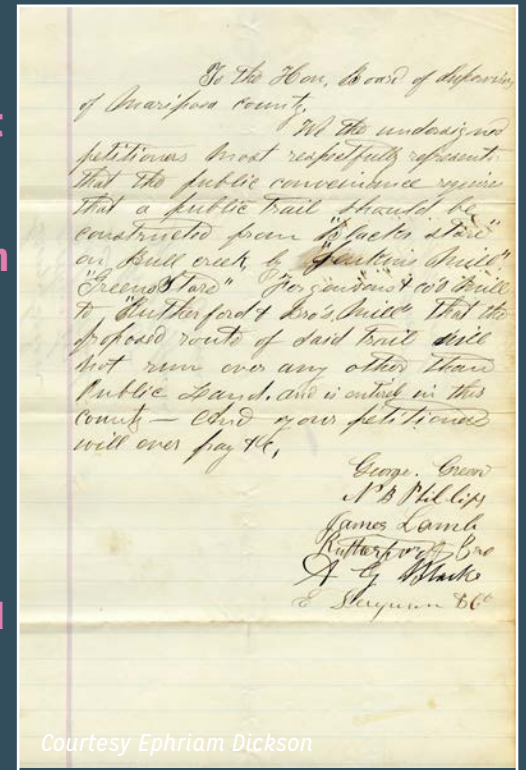 To the Hon, Board of Supervisors
of Mariposa County.
We the undersigned
petitioners most respectfully represent
that the public convenience requires
that a public trail should be
constructed from "Blacks Store"
on Bull creek, by "Jenkins Mill"
"Greens Store" Forgusons & co's Mill
to "Rutherford & Bro's. Mill", that the
proposed route of said trail will
not run over any other than
Public Land. and is entirely in this
County — And your petitioners
will ever pray &c,
George. Green
N B Phillips
James Lamb
Rutherford & Bro
A G Black
E Ferguson & Co
Courtesy Ephriam Dickson